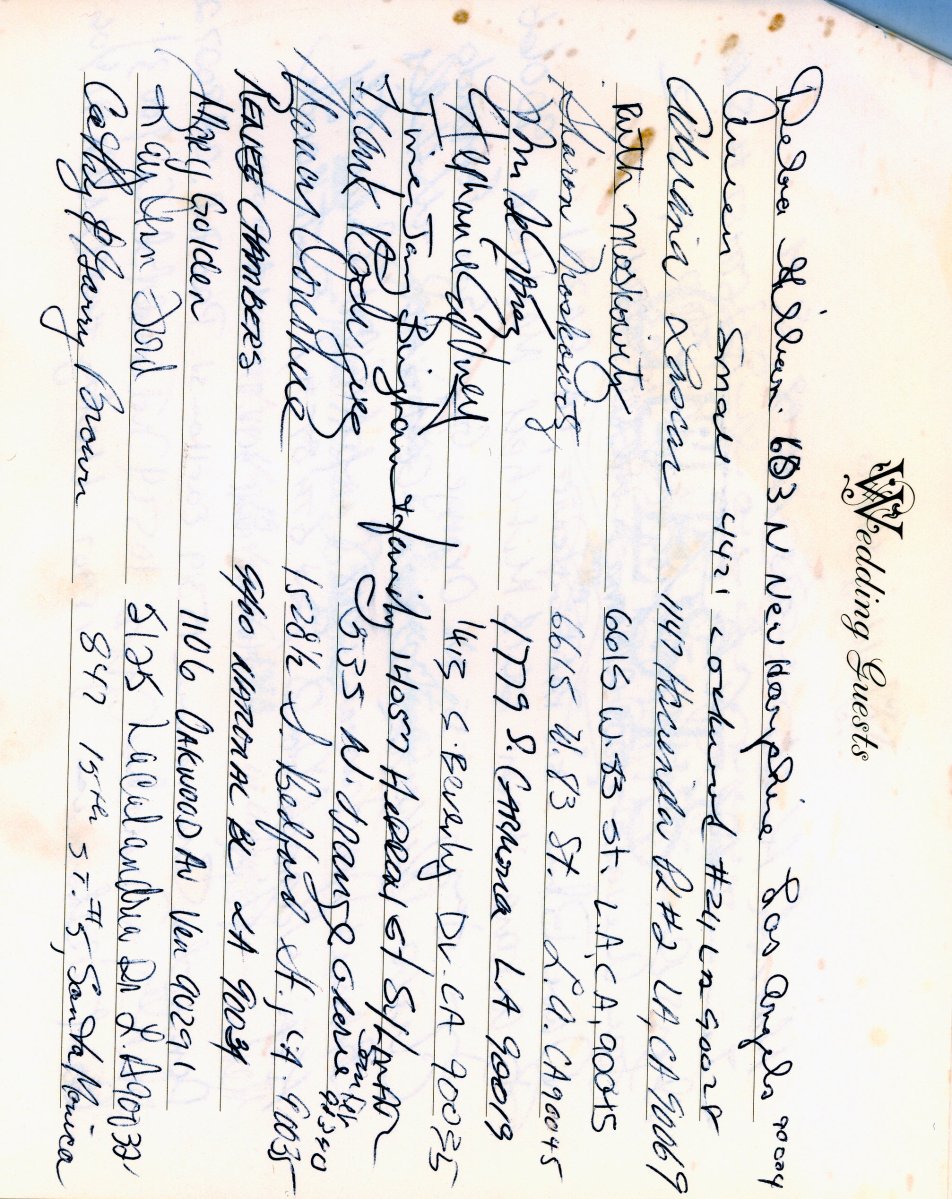 Wedding Guests
Debra Gilliam 603 N New Hampshire Los Angeles 90004
Queen Small 4421 Lockwood #214 LA 90028
Adriana 1147 Hacienda Pl #2 LA, CA 90069
Ruth Moskowitz 6615 W. 83 St. L.A, CA, 90045
Sharon Moskowitz 6615 W. 83 St. L.A. CA 90045
1779 S. CARMONA LA 90019
Stephanie 1413 S. Beverly Dr. CA 90035
Jane Bingham + family 14057 Hubbard St Sylmar
Mark Rodriguez 535 N. Orange Glendale
91340
Nancy Donohue 1528 1/2 S. Bedford St., LA. 90035
RENEE CHAMBERS NATIONAL BL LA 90034
Mary Golden 1106 OAKWOOD AV Ven 90291
Kay Ann Ford 5125 Lacalandria Dr L.A 90032
Cathy & Garry Brown 847 15TH ST. #5, Santa Monica